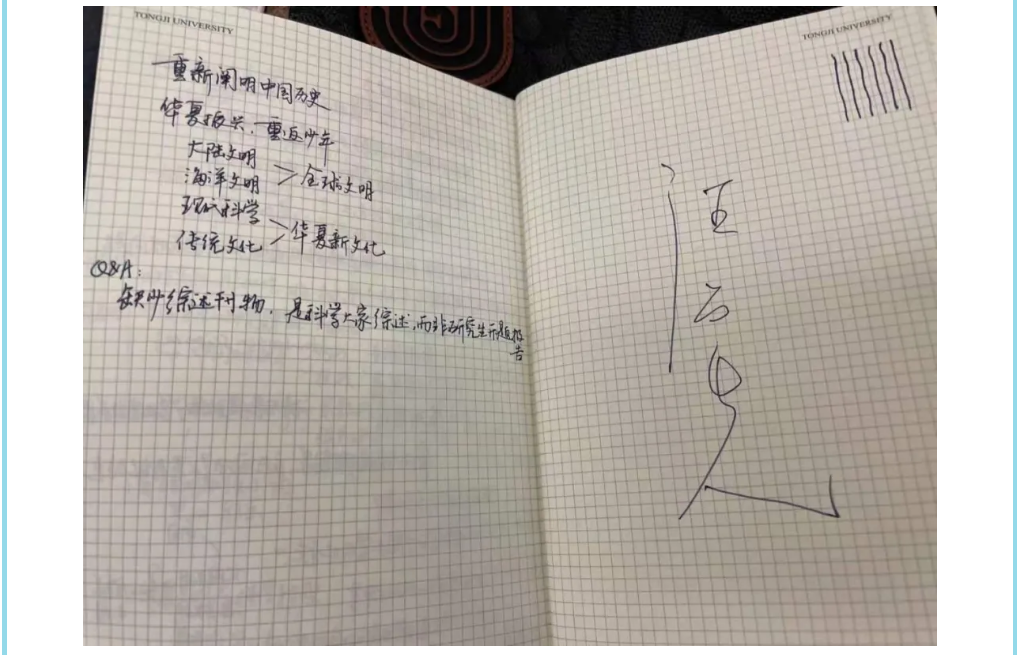 TONGJI UNIVERSITY
重新阐明中国历史
华夏振兴,重返少年
大陆文明
海洋文明 > 全球文明
现代科学
传统文化 > 华夏新文化
Q&A:
缺少综述刊物,是科学大家综述,而非研究生开题报
告
TONGJI UNIVERSITY
汪品先